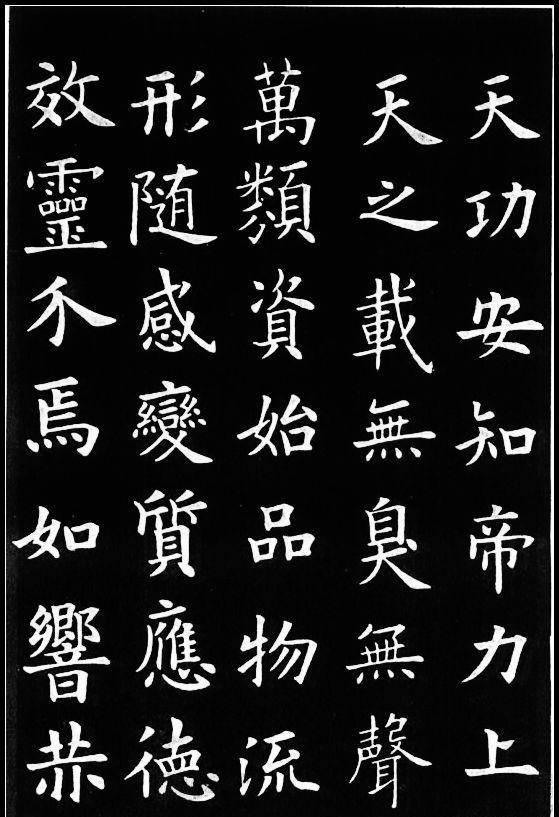 天功安知帝力上
天之載無臭無聲
萬類資始品物流
形隨感變質應德
效靈尒焉如響恭